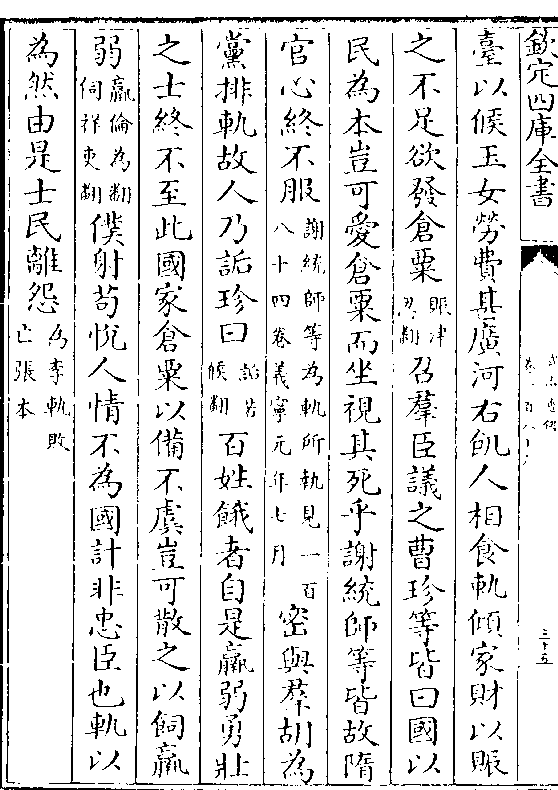 欽定四庫全書
三十五
臺以候玉女勞費甚廣河右飢人相食軌傾家財以賑
之不足欲發倉粟賑津忍翻召羣臣議之曹珍等皆曰國以
民為本豈可愛倉粟而坐視其死乎謝統師等皆故隋
官心終不服謝統師等為軌所執見一百八十四卷義寧元年七月密與羣胡為
黨排軌故人乃詬珍曰詬苦候翻百姓餓者自是羸弱勇壯
之士終不至此國家倉粟以備不虞豈可散之以飼羸
弱羸倫為翻飼祥吏翻僕射苟恱人情不為國計非忠臣也軌以
為然由是士民離怨為李軌敗亡張本